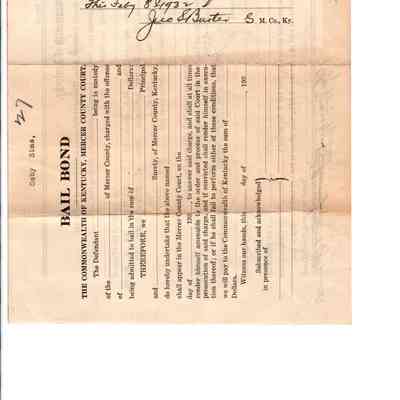 This Feby 8 1932
Geo S Buster S. M. Co., Ky.
27
Caby Sims,
BAIL BOND
THE COMMONWEALTH OF KENTUCKY, MERCER COUNTY COURT.
The Defendant being in custody
of the of Mercer County, charged with the offense
of and
being admitted to bail in the sum of Dollars:
THEREFORE, we Principal
and Surety, of Mercer County, Kentucky,
do hereby undertake that the above named
shall appear in the Mercer County Court, on the
day of 192 , to answer said charge, and shall at all times
render himself amenable to the order and process of said Court in the
prosecution of said charge, and if convicted shall render himself in execu-
tion thereof; or if he shall fail to perform either of these conditions, that
we will pay to the Commonwealth of Kentucky the sum of
Dollars.
Witness our hands, this day of , 192
Subscribed and acknowledged
in presence of